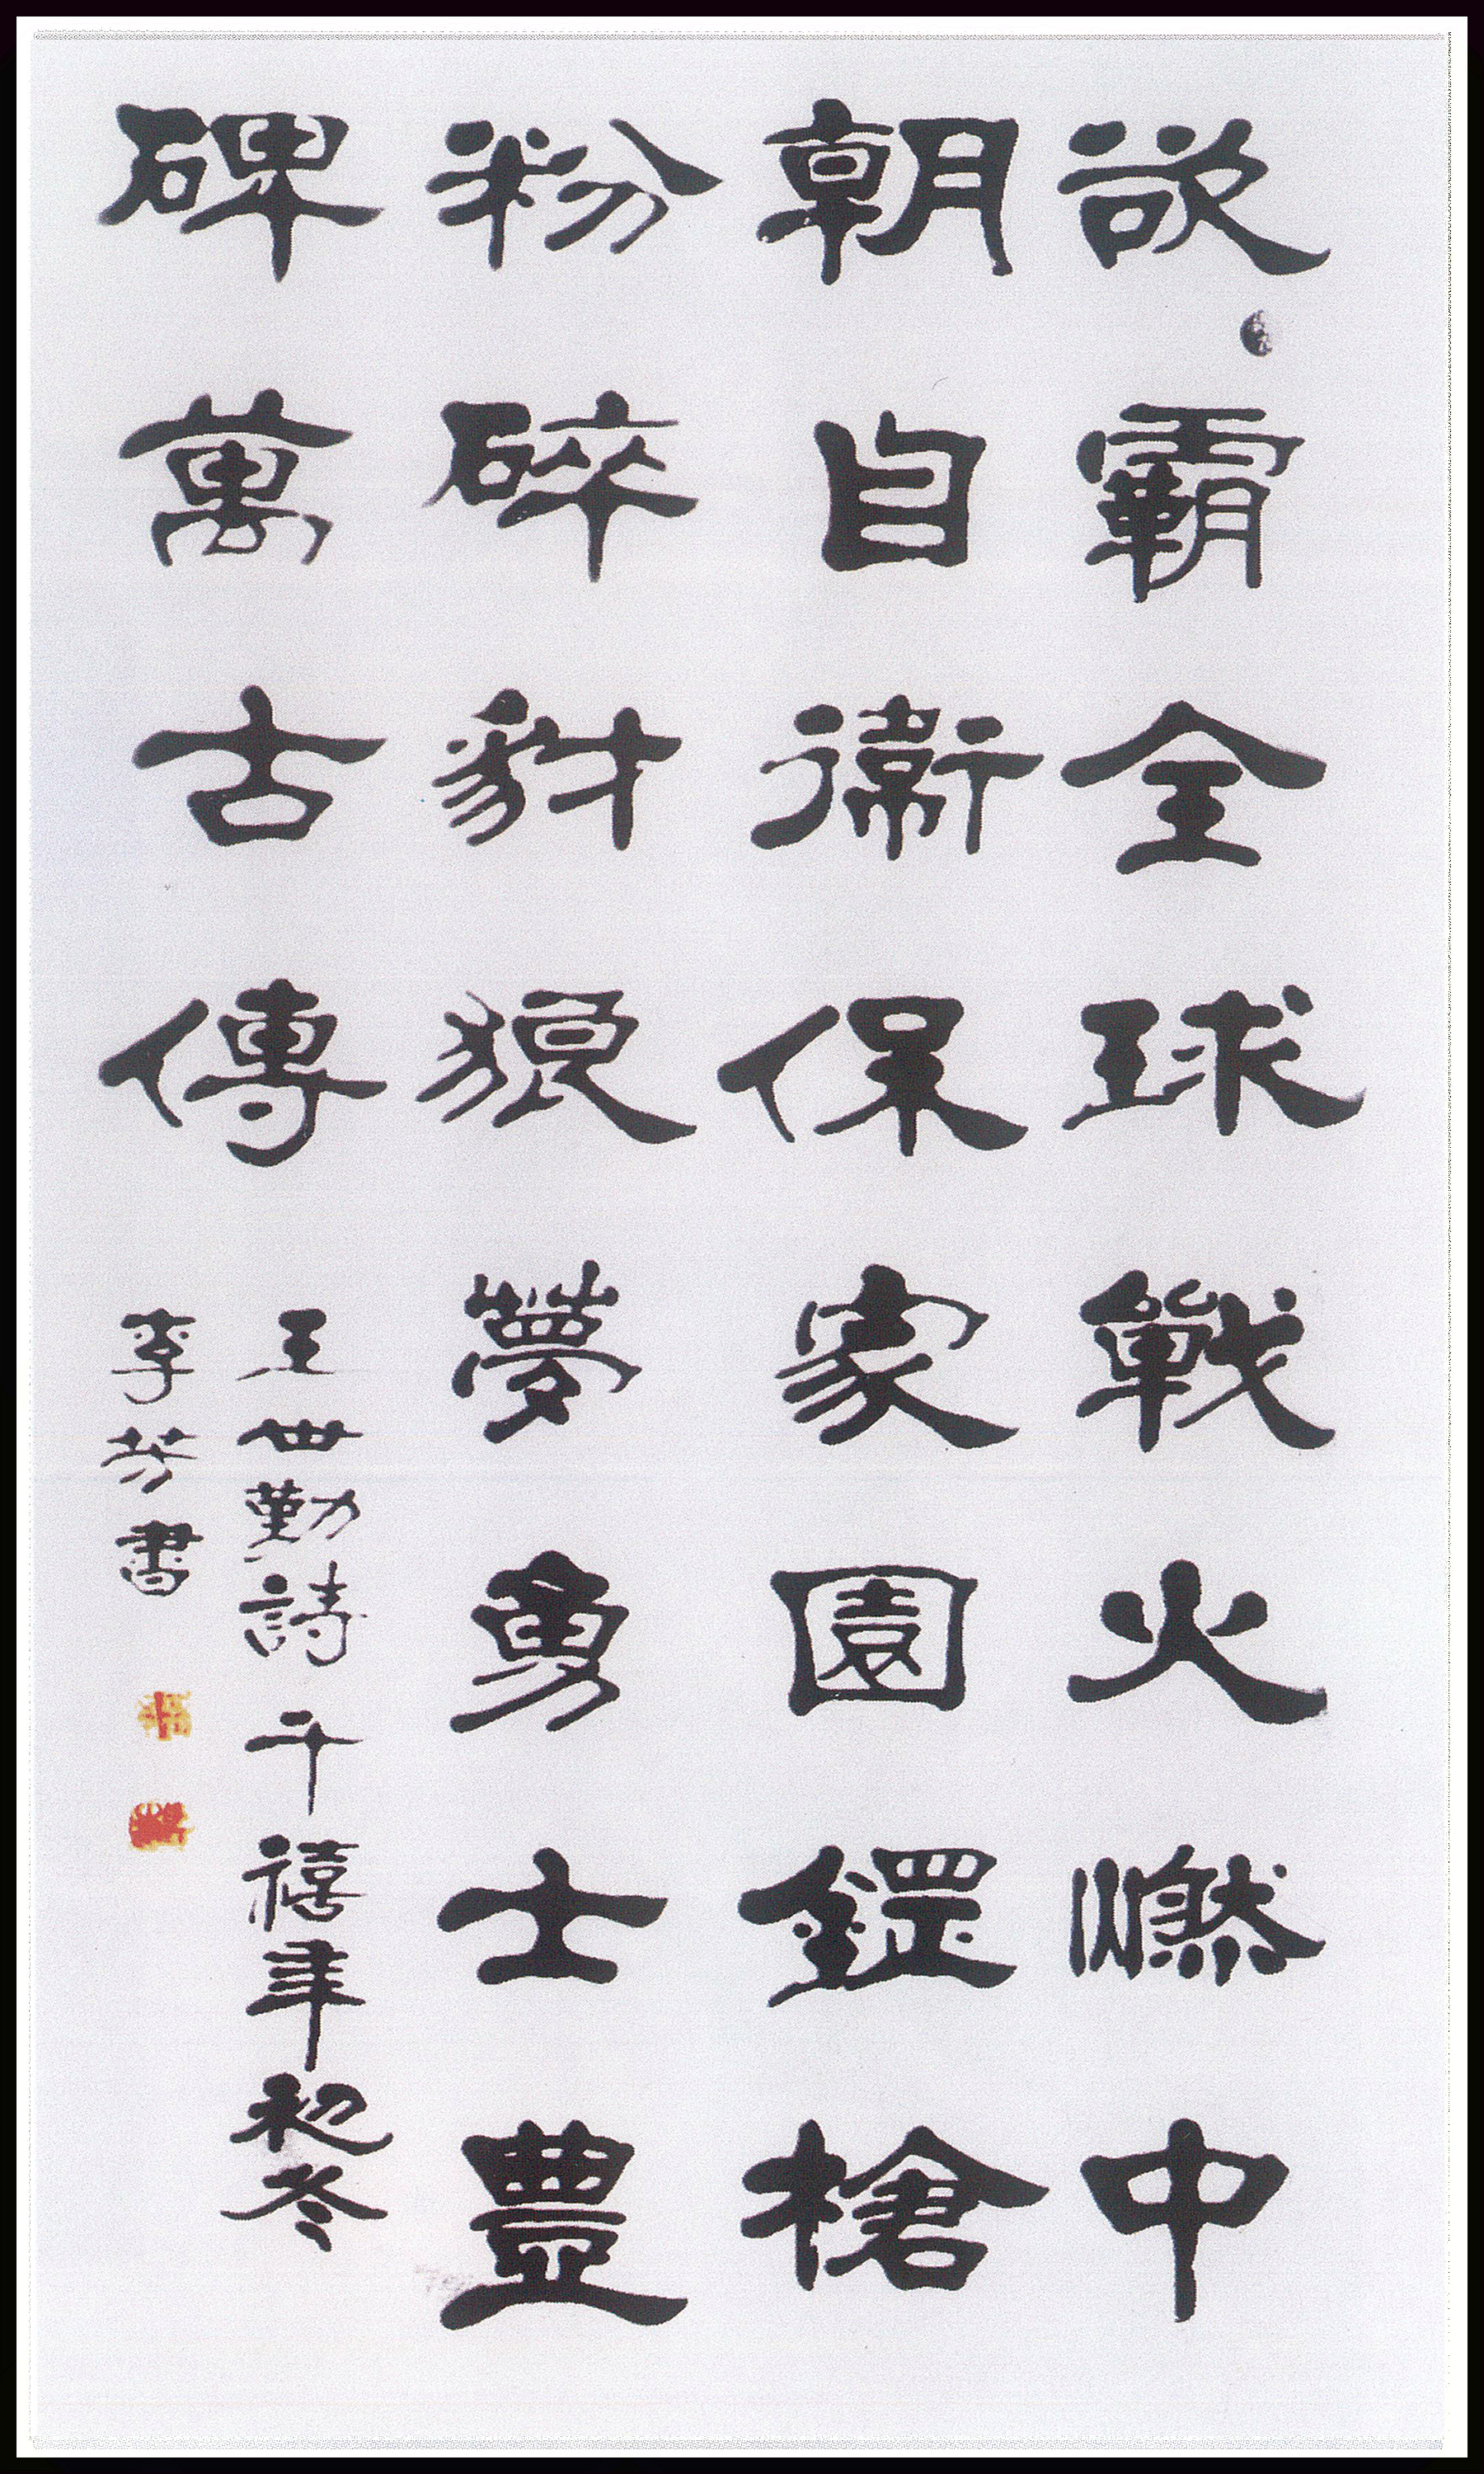 欲霸全球戰火燃中
朝自衛保家園鏗槍
粉碎豺狼夢勇士豊
碑萬古傳
王世勤詩千禧年初冬
李芳書